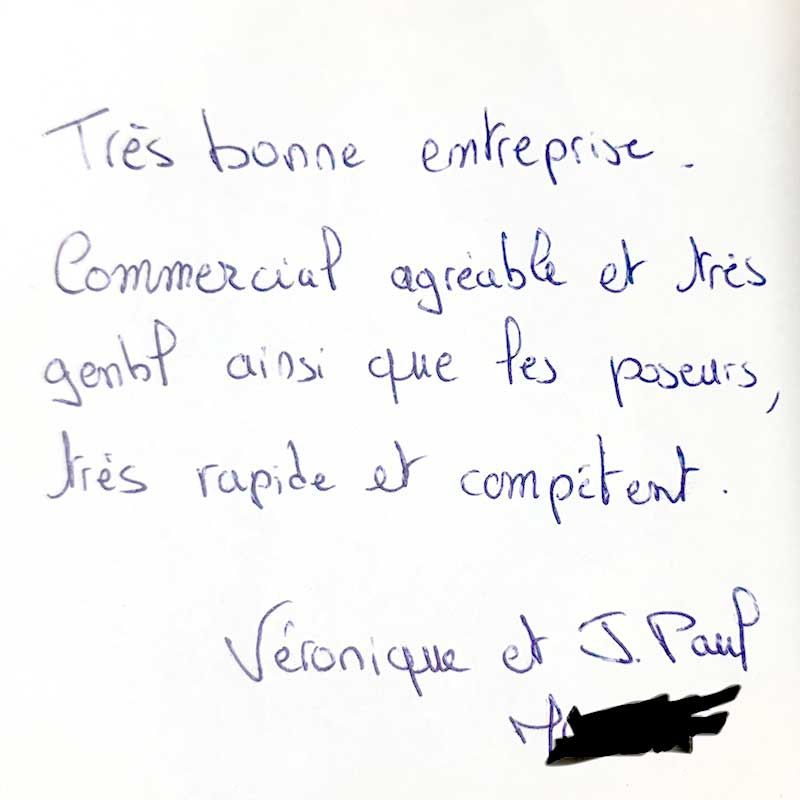 Très bonne entreprise.
Commercial agréable et très
gentil ainsi que les poseurs,
très rapide et compétent.
Véronique et J. Paul